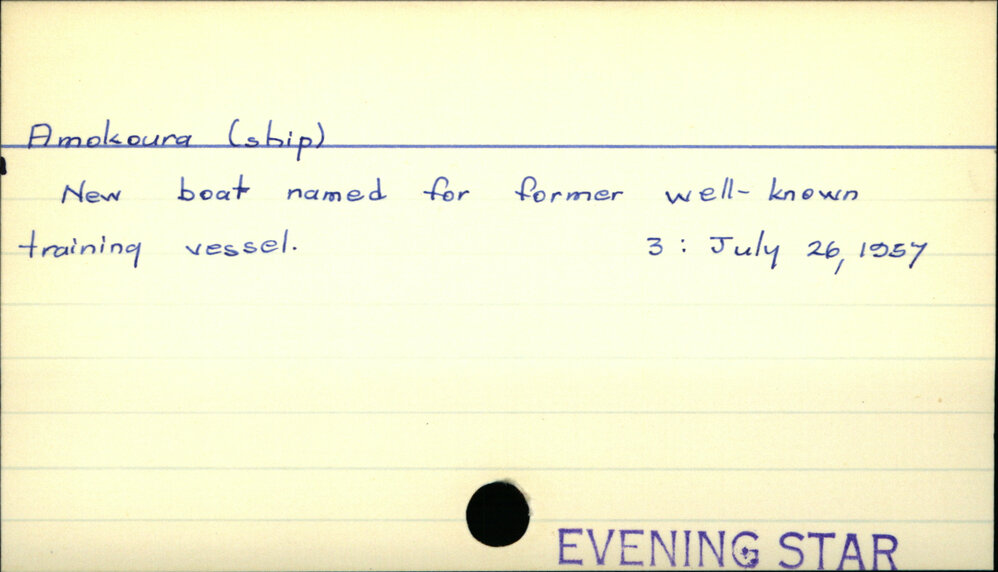 Amokoura (ship)
New boat named for former well-known
training vessel. 3 : July 26, 1957
EVENING STAR